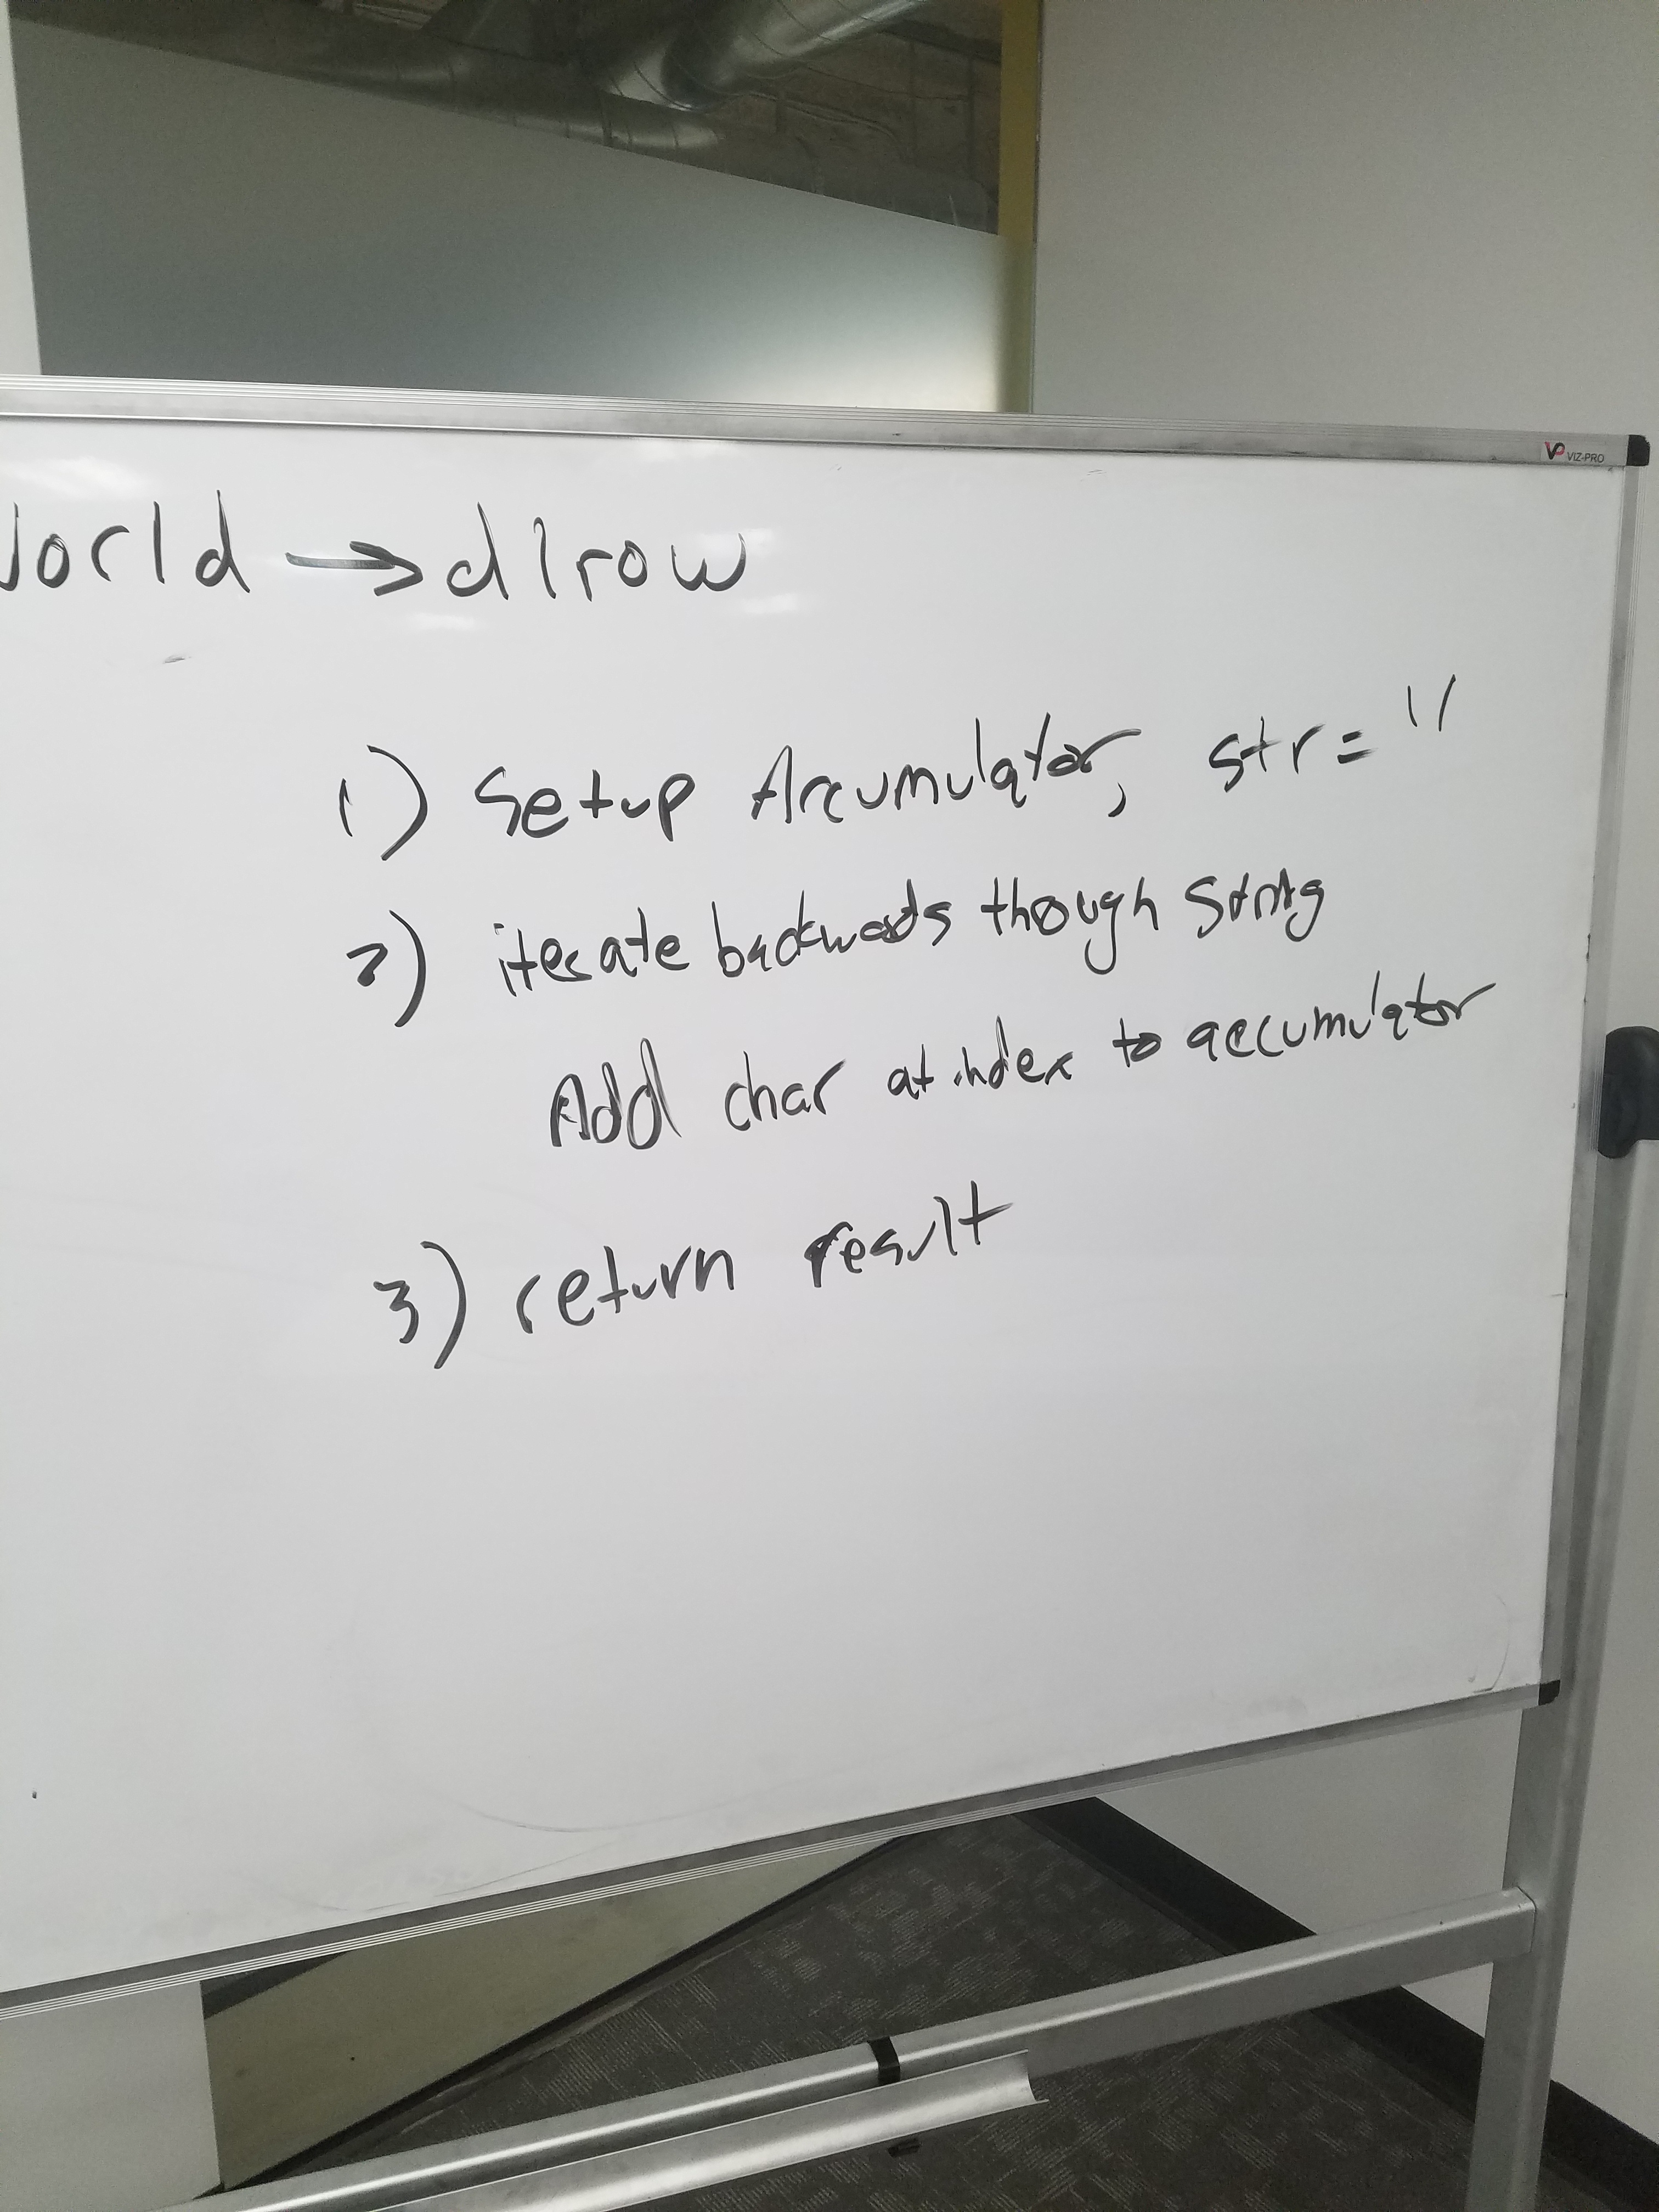 VIZ-PRO
World → dlrow
1) Setup Accumulator, str = ''
2) iterate backwards though string
Add char at index to accumulator
3) return result